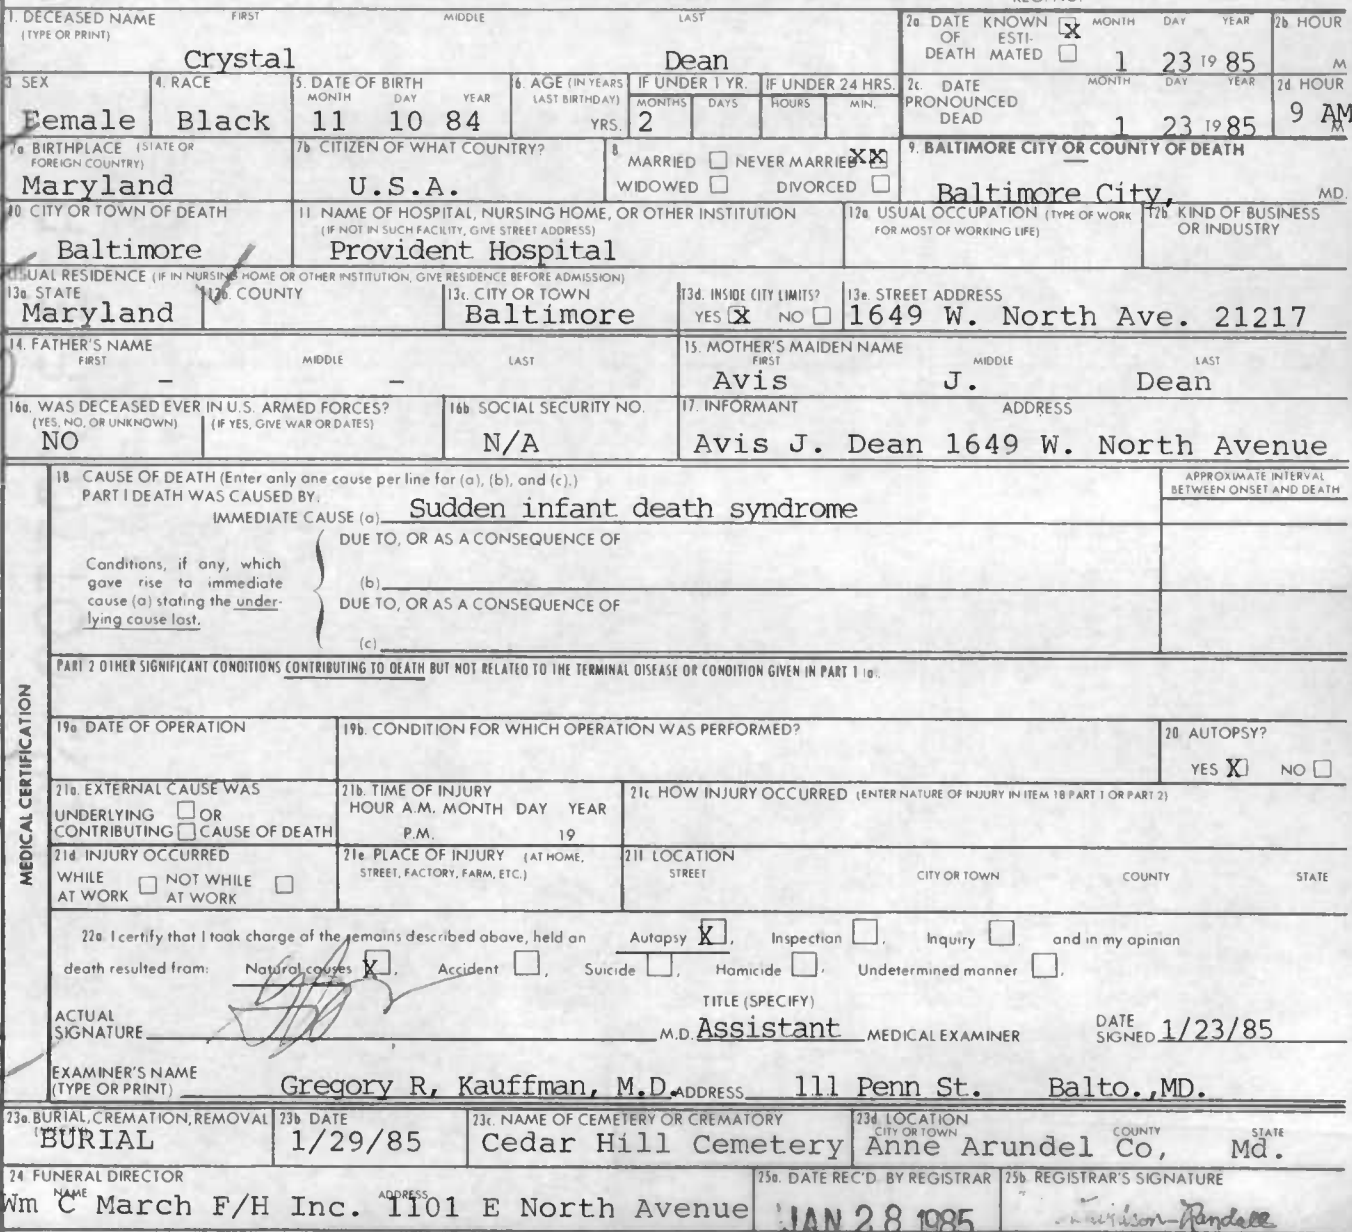 1. DECEASED NAME FIRST MIDDLE LAST
(TYPE OR PRINT)
Crystal Dean
2a DATE KNOWN X MONTH DAY YEAR
OF ESTI-
DEATH MATED 1 23 19 85
2b HOUR
M
3 SEX
Female
4. RACE
Black
5. DATE OF BIRTH
MONTH DAY YEAR
11 10 84
6. AGE (IN YEARS
LAST BIRTHDAY)
YRS.
IF UNDER 1 YR. IF UNDER 24 HRS.
MONTHS DAYS HOURS MIN.
2
2c. DATE MONTH DAY YEAR
PRONOUNCED
DEAD 1 23 19 85
2d HOUR
9 AM
M
7a BIRTHPLACE (STATE OR
FOREIGN COUNTRY)
Maryland
7b CITIZEN OF WHAT COUNTRY?
U.S.A.
8
MARRIED NEVER MARRIED XX
WIDOWED DIVORCED
9. BALTIMORE CITY OR COUNTY OF DEATH
Baltimore City, MD.
10 CITY OR TOWN OF DEATH
Baltimore
11 NAME OF HOSPITAL, NURSING HOME, OR OTHER INSTITUTION
(IF NOT IN SUCH FACILITY, GIVE STREET ADDRESS)
Provident Hospital
12a USUAL OCCUPATION (TYPE OF WORK
FOR MOST OF WORKING LIFE)
12b. KIND OF BUSINESS
OR INDUSTRY
USUAL RESIDENCE (IF IN NURSING HOME OR OTHER INSTITUTION, GIVE RESIDENCE BEFORE ADMISSION)
13a STATE
Maryland
13b. COUNTY
13c. CITY OR TOWN
Baltimore
13d. INSIDE CITY LIMITS?
YES X NO
13e. STREET ADDRESS
1649 W. North Ave. 21217
14. FATHER'S NAME
FIRST MIDDLE LAST
– –
15. MOTHER'S MAIDEN NAME
FIRST MIDDLE LAST
Avis J. Dean
16a. WAS DECEASED EVER IN U.S. ARMED FORCES?
(YES, NO, OR UNKNOWN) (IF YES, GIVE WAR OR DATES)
NO
16b SOCIAL SECURITY NO.
N/A
17. INFORMANT ADDRESS
Avis J. Dean 1649 W. North Avenue
MEDICAL CERTIFICATION
18 CAUSE OF DEATH (Enter only one cause per line for (a), (b), and (c).)
PART I DEATH WAS CAUSED BY,
IMMEDIATE CAUSE (a) Sudden infant death syndrome
APPROXIMATE INTERVAL
BETWEEN ONSET AND DEATH
DUE TO, OR AS A CONSEQUENCE OF
Conditions, if any, which
gave rise to immediate
cause (a) stating the under-
lying cause last.
(b)
DUE TO, OR AS A CONSEQUENCE OF
(c)
PART 2 OTHER SIGNIFICANT CONDITIONS CONTRIBUTING TO DEATH BUT NOT RELATED TO THE TERMINAL DISEASE OR CONDITION GIVEN IN PART 1 (a).
19a DATE OF OPERATION
19b. CONDITION FOR WHICH OPERATION WAS PERFORMED?
20 AUTOPSY?
YES X NO
21a. EXTERNAL CAUSE WAS
UNDERLYING OR
CONTRIBUTING CAUSE OF DEATH
21b. TIME OF INJURY
HOUR A.M. MONTH DAY YEAR
P.M. 19
21c HOW INJURY OCCURRED (ENTER NATURE OF INJURY IN ITEM 18 PART 1 OR PART 2)
21d INJURY OCCURRED
WHILE NOT WHILE
AT WORK AT WORK
21e PLACE OF INJURY (AT HOME,
STREET, FACTORY, FARM, ETC.)
21f LOCATION
STREET CITY OR TOWN COUNTY STATE
22a I certify that I took charge of the remains described above, held an Autopsy X, Inspection , Inquiry , and in my opinion
death resulted from: Natural causes X, Accident , Suicide , Homicide , Undetermined manner .
ACTUAL
SIGNATURE
TITLE (SPECIFY)
M.D. Assistant MEDICAL EXAMINER
DATE
SIGNED 1/23/85
EXAMINER'S NAME
(TYPE OR PRINT) Gregory R, Kauffman, M.D. ADDRESS 111 Penn St. Balto.,MD.
23a. BURIAL, CREMATION, REMOVAL
BURIAL
23b DATE
1/29/85
23c. NAME OF CEMETERY OR CREMATORY
Cedar Hill Cemetery
23d LOCATION
CITY OR TOWN COUNTY STATE
Anne Arundel Co, Md.
24 FUNERAL DIRECTOR
NAME ADDRESS
Wm C March F/H Inc. 1101 E North Avenue
25a. DATE REC'D BY REGISTRAR
JAN 28 1985
25b REGISTRAR'S SIGNATURE